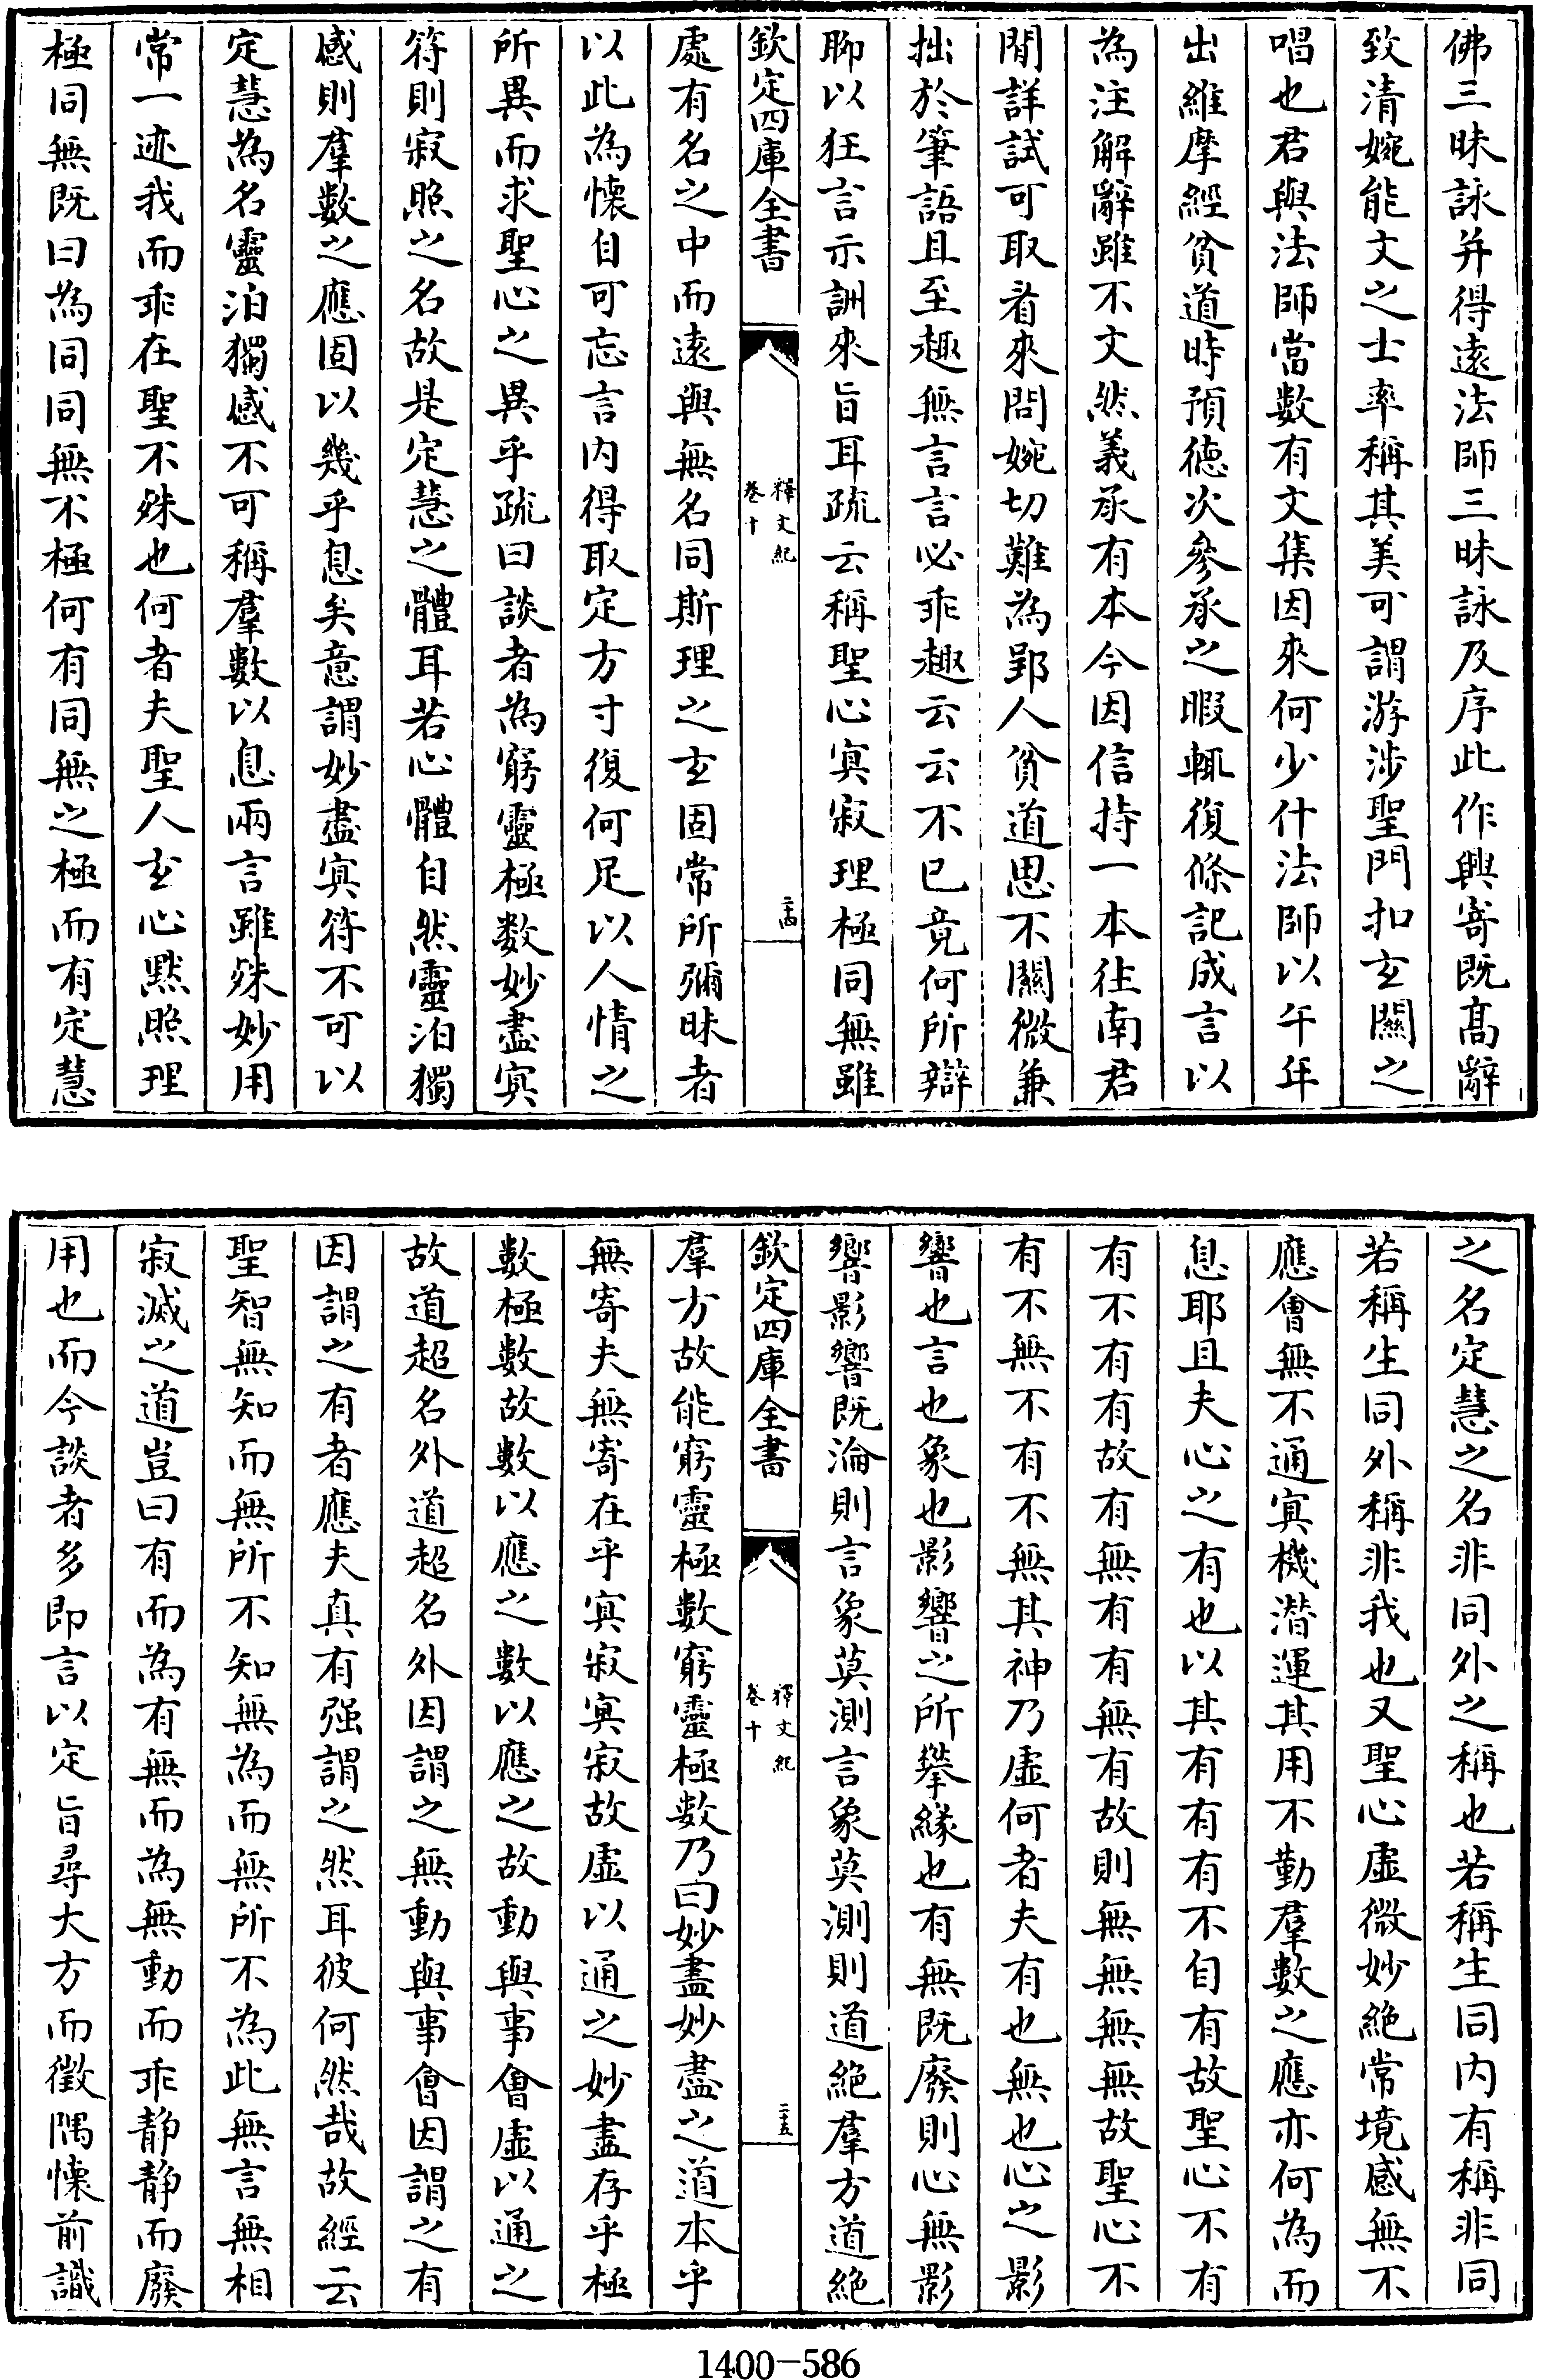 佛三昧詠并得遠法師三昧詠及序此作興寄既髙辭
致清婉能文之士率稱其美可謂游涉聖門扣玄關之
唱也君與法師當數有文集因來何少什法師以午年
出維摩經貧道時預聴次參承之暇輒復條記成言以
為注解辭雖不文然義承有本今因信持一本往南君
閒詳試可取看來問婉切難為郢人貧道思不關微兼
拙於筆語且至趣無言言必乖趣云云不已竟何所辯
聊以狂言示訓來旨耳疏云稱聖心㝠寂理極同無雖
欽定四庫全書
釋文紀
卷十
二十四
處有名之中而遠與無名同斯理之玄固常所彌昧者
以此為懷自可忘言内得取定方寸復何足以人情之
所異而求聖心之異乎疏曰談者為窮靈極數妙盡㝠
符則寂照之名故是定慧之體耳若心體自然靈泊獨
感則羣數之應固以幾乎息矣意謂妙盡㝠符不可以
定慧為名靈泊獨感不可稱羣數以息兩言雖殊妙用
常一迹我而乖在聖不殊也何者夫聖人玄心黙照理
極同無既曰為同同無不極何有同無之極而有定慧
之名定慧之名非同外之稱也若稱生同内有稱非同
若稱生同外稱非我也又聖心虚微妙絶常境感無不
應會無不通㝠機潛運其用不勤羣數之應亦何為而
息耶且夫心之有也以其有有有不自有故聖心不有
有不有有故有無有有無有故則無無無無故聖心不
有不無不有不無其神乃虚何者夫有也無也心之影
響也言也象也影響之所攀縁也有無既廢則心無影
響影響既淪則言象莫測言象莫測則道絶羣方道絶
欽定四庫全書
釋文紀
卷十
二十五
羣方故能窮靈極數窮靈極數乃曰妙盡妙盡之道本乎
無寄夫無寄在乎㝠寂㝠寂故虚以通之妙盡存乎極
數極數故數以應之數以應之故動與事㑹虚以通之
故道超名外道超名外因謂之無動與事㑹因謂之有
因謂之有者應夫真有强謂之然耳彼何然哉故經云
聖智無知而無所不知無為而無所不為此無言無相
寂滅之道豈曰有而為有無而為無動而乖静静而廢
用也而今談者多即言以定旨尋大方而徵隅懷前識
1400-586